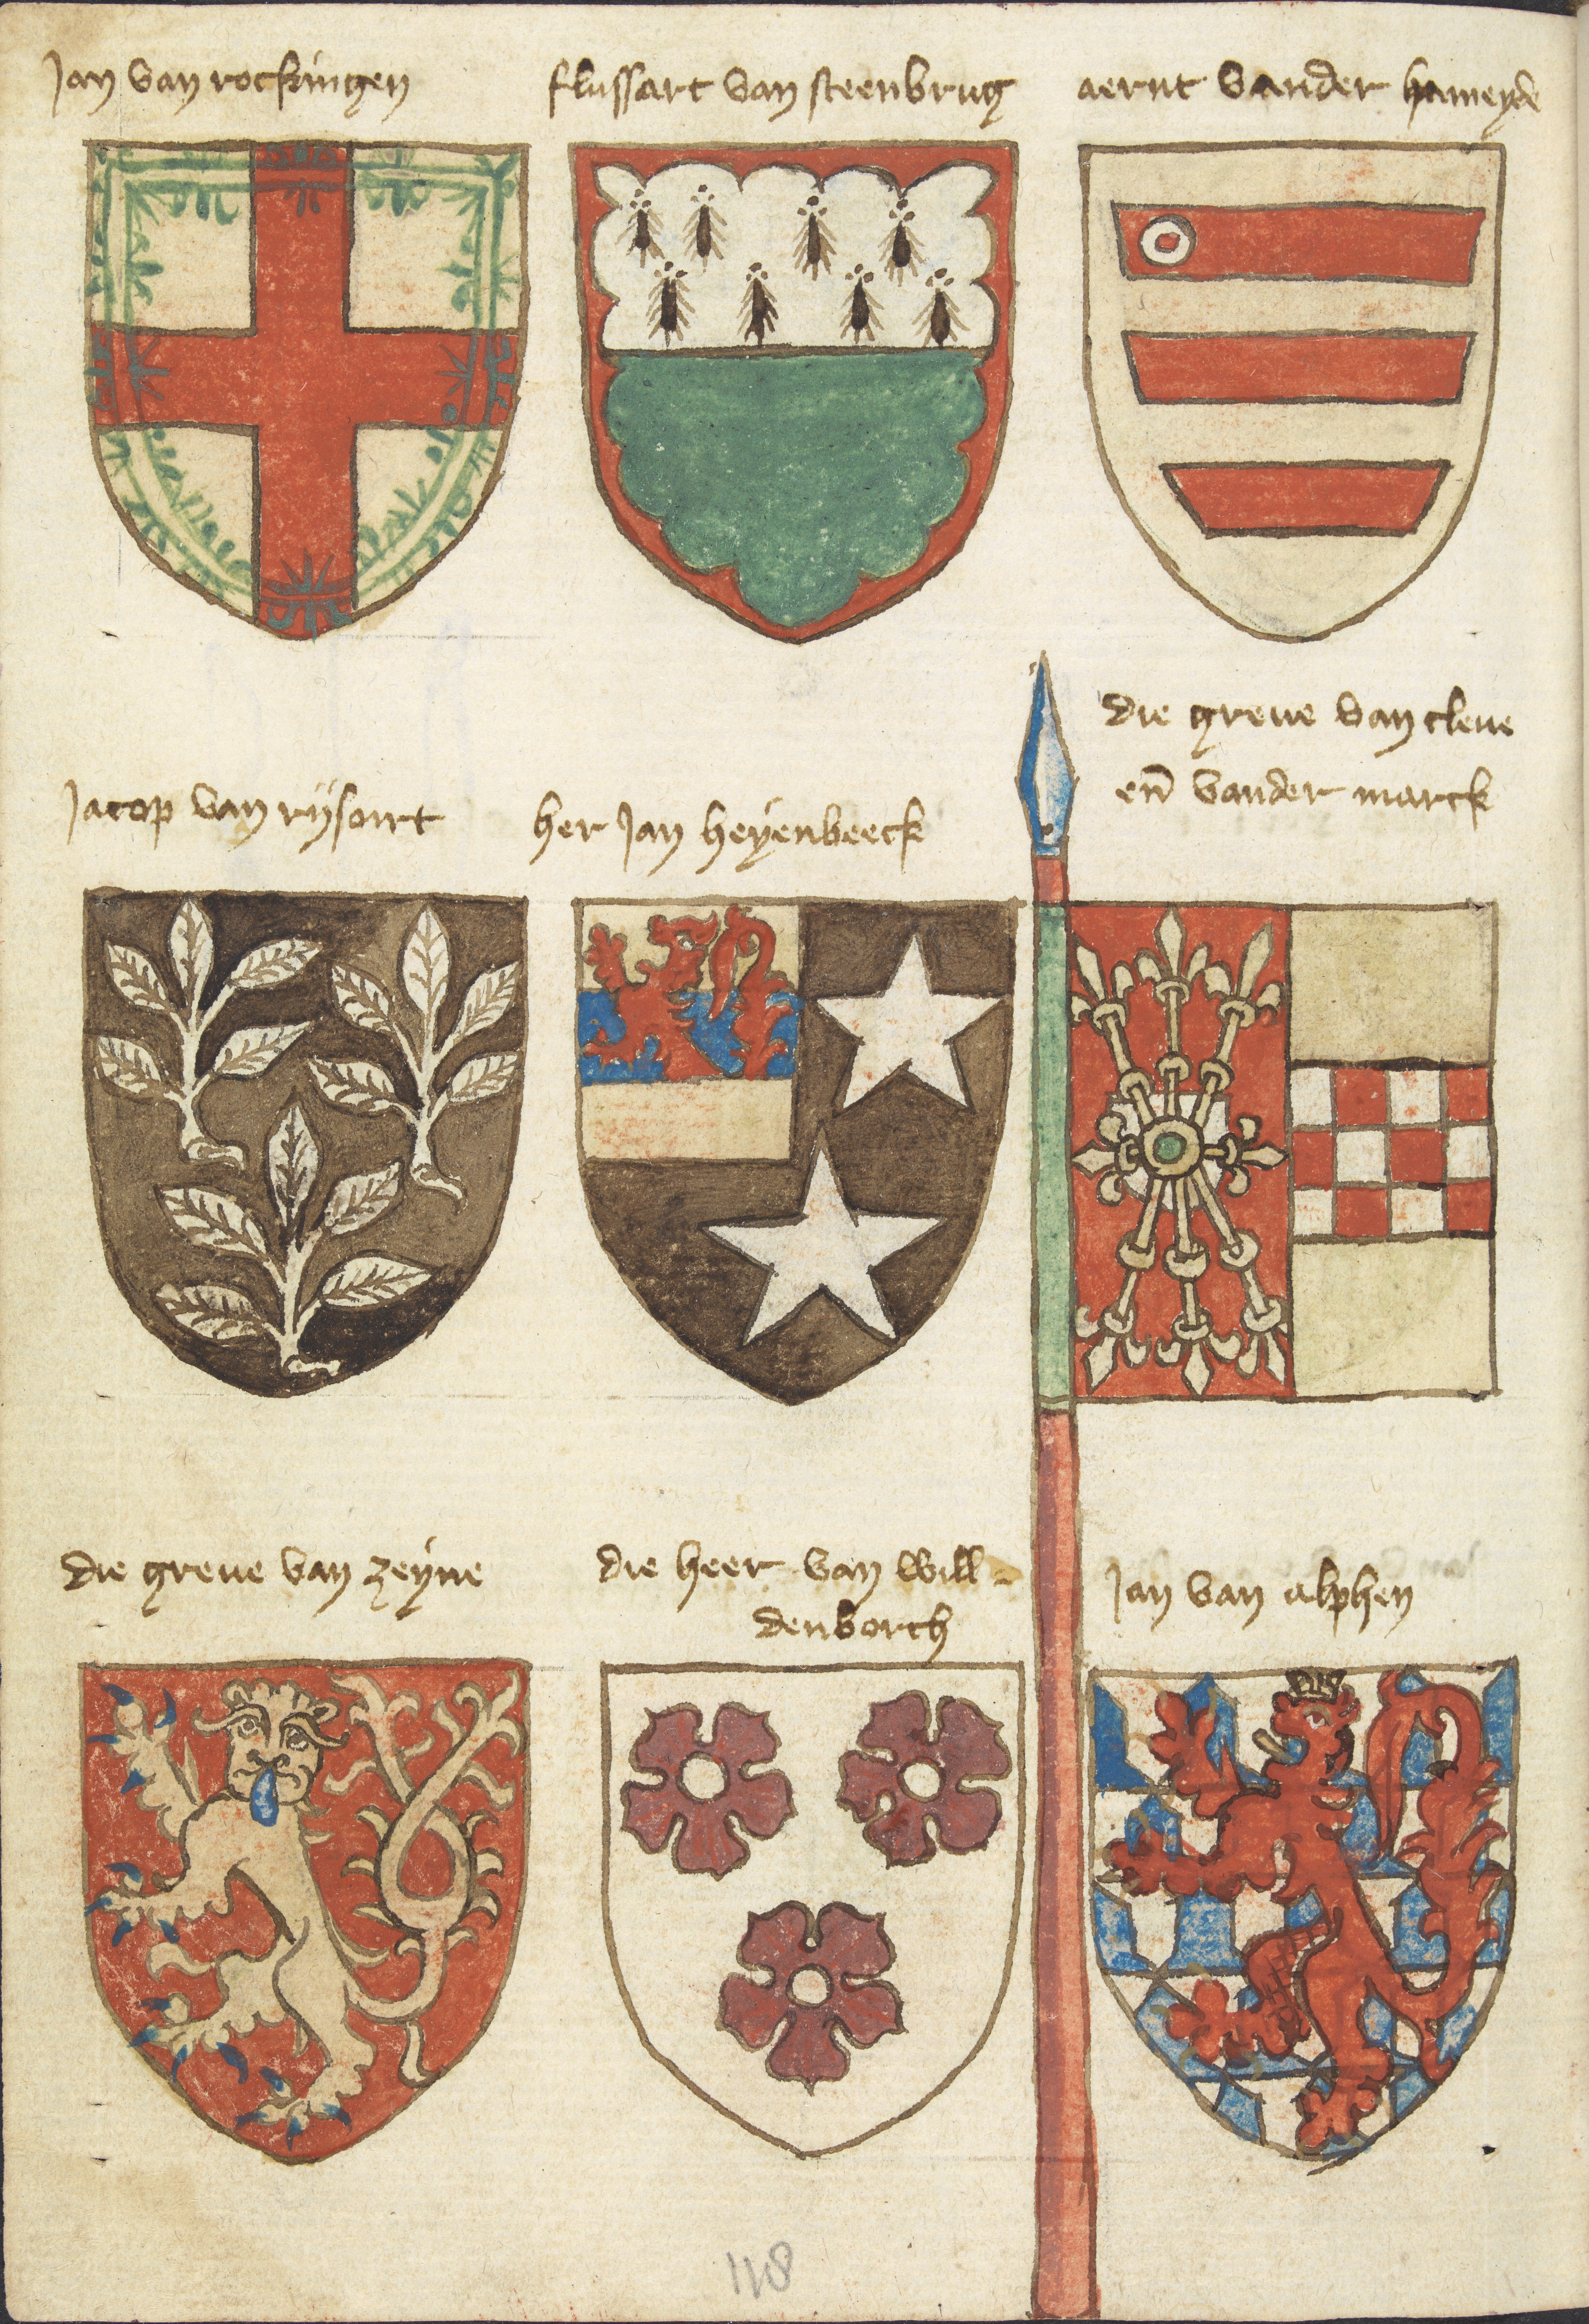 Jan van rockingen
flussart van steenbrug
aernt vander hameyde
Jacop van rijsoirt
her Jan heyenbeeck
die greve van cleve
en̄ vander marck
die greve van zeyne
die heer van will-
denborch
Jan van alphen
118